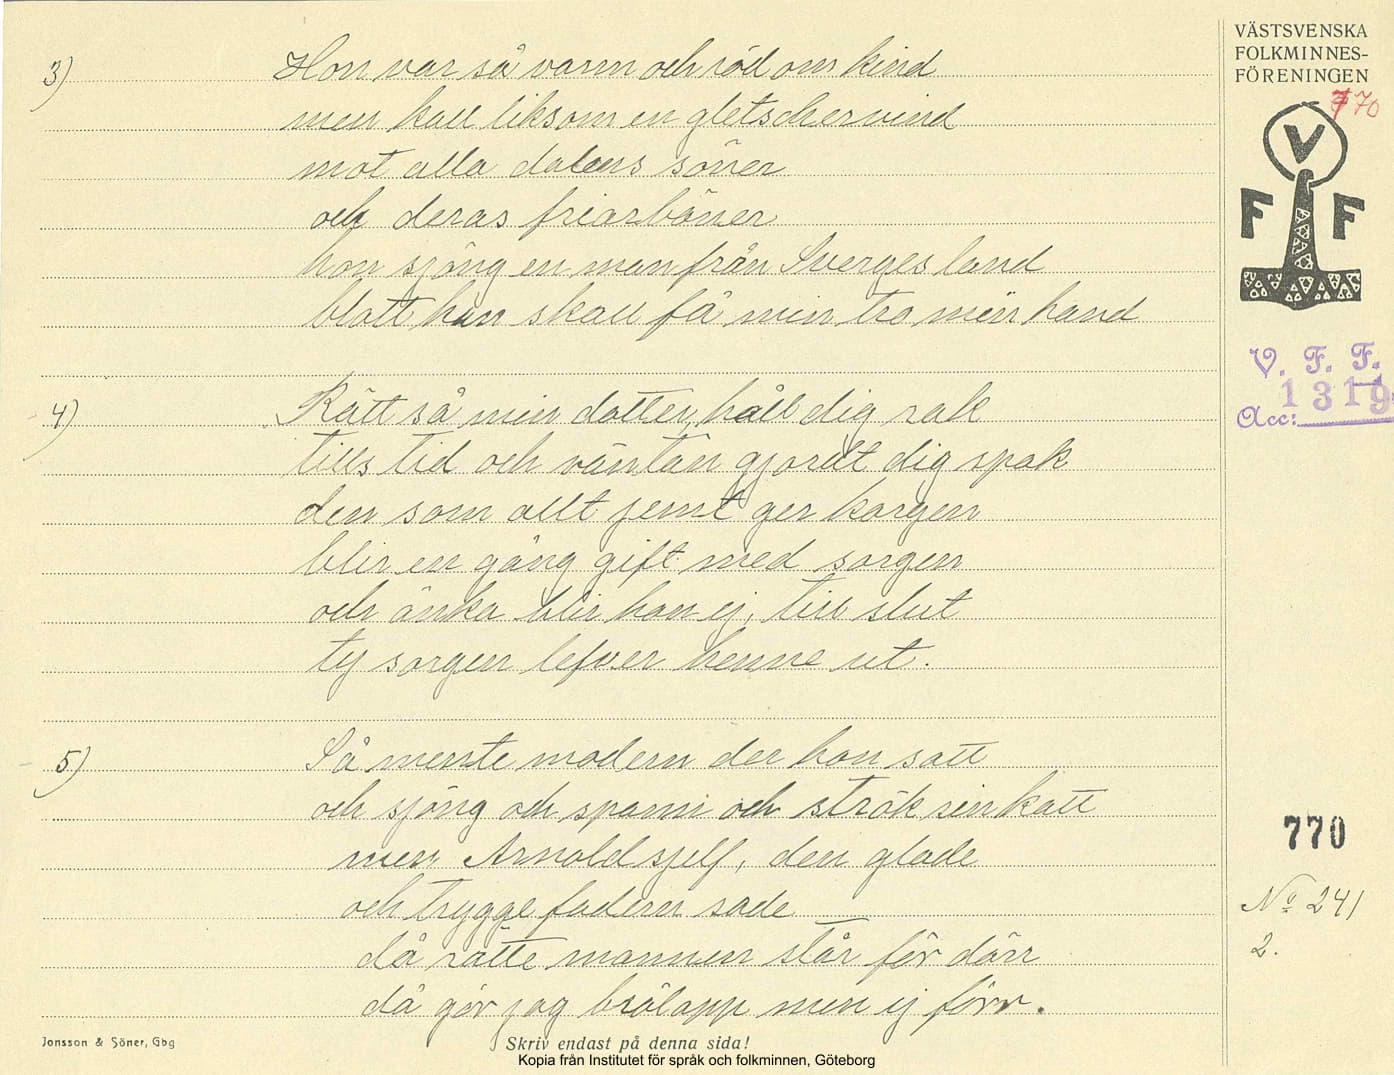 VÄSTSVENSKA
FOLKMINNES-
FÖRENINGEN
770
V
F F
V. F. F.
Acc: 1319
3) Hon var så varm och röd om kind
men kall liksom en gletschervind
mot alla dalens söner
och deras friarböner
hon sjöng en man från Sverges land
blott han skall få min tro min hand
4) Rätt så min dotter, håll dig rak
tills tid och väntan gjordt dig spak
den som allt jemt ger korgen
blir en gång gift med sorgen
och änka blir hon ej, till slut
ty sorgen lefver henne ut.
5) Så mente modern der hon satt
och sjöng och spann och strök sin katt
men Arnold sjelf, den glade
och trygge fadern sade
då rätte mannen står för dörr
då gör jag brölapp men ej förr.
770
No 241
2.
Jonsson & Söner, Gbg
Skriv endast på denna sida!
Kopia från Institutet för språk och folkminnen, Göteborg